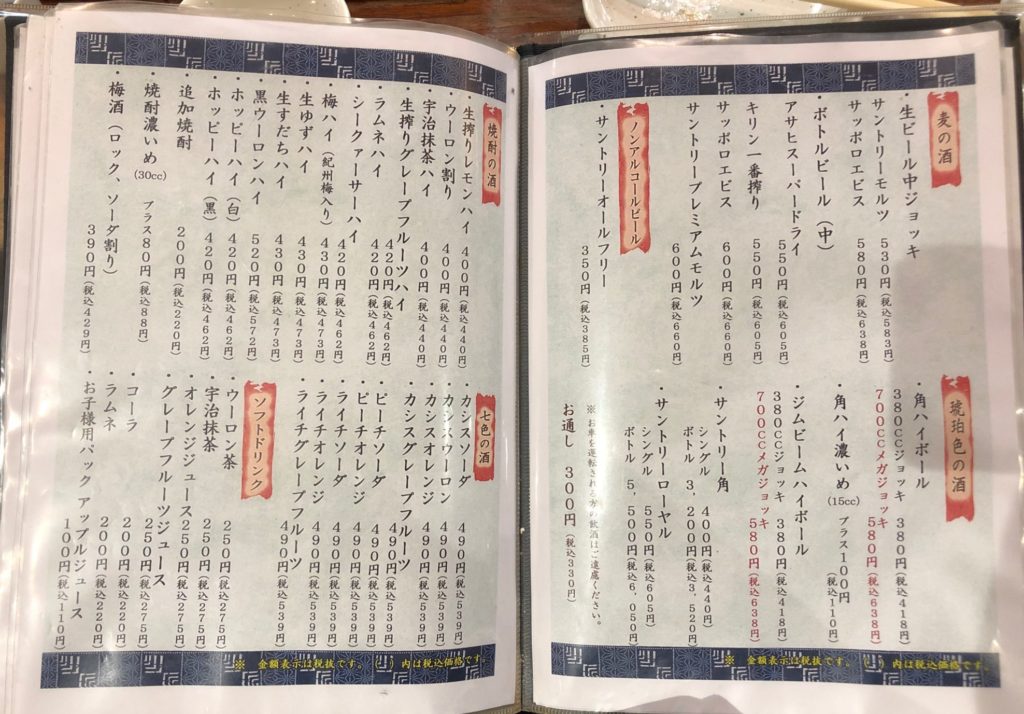 麦の酒
・生ビール中ジョッキ
サントリーモルツ 530円(税込583円)
サッポロエビス 580円(税込638円)
・ボトルビール(中)
アサヒスーパードライ 550円(税込605円)
キリン一番搾り 550円(税込605円)
サッポロエビス 600円(税込660円)
サントリープレミアムモルツ 600円(税込660円)
ノンアルコールビール
・サントリーオールフリー 350円(税込385円)
琥珀色の酒
・角ハイボール
380ccジョッキ 380円(税込418円)
700ccメガジョッキ 580円(税込638円)
角ハイ濃いめ(15cc) プラス100円(税込110円)
・ジムビームハイボール
380ccジョッキ 380円(税込418円)
700ccメガジョッキ 580円(税込638円)
・サントリー角
シングル 400円(税込440円)
ボトル 3,200円(税込3,520円)
・サントリーローヤル
シングル 550円(税込605円)
ボトル 5,500円(税込6,050円)
※お車を運転される方の飲酒はご遠慮ください。
お通し 300円(税込330円)
※ 金額表示は税抜です。( )内は税込価格です。
焼酎の酒
・生搾りレモンハイ 400円(税込440円)
・ウーロン割り 400円(税込440円)
・宇治抹茶ハイ 400円(税込440円)
・生搾りグレープフルーツハイ 420円(税込462円)
・ラムネハイ 420円(税込462円)
・シークァーサーハイ 420円(税込462円)
・梅ハイ(紀州梅入り) 430円(税込473円)
・生ゆずハイ 430円(税込473円)
・生すだちハイ 430円(税込473円)
・黒ウーロンハイ 520円(税込572円)
・ホッピーハイ(白) 420円(税込462円)
・ホッピーハイ(黒) 420円(税込462円)
・追加焼酎 200円(税込220円)
・焼酎濃いめ(30cc) プラス80円(税込88円)
・梅酒(ロック、ソーダ割り) 390円(税込429円)
七色の酒
・カシスソーダ 490円(税込539円)
・カシスウーロン 490円(税込539円)
・カシスオレンジ 490円(税込539円)
・カシスグレープフルーツ 490円(税込539円)
・ピーチソーダ 490円(税込539円)
・ピーチオレンジ 490円(税込539円)
・ライチソーダ 490円(税込539円)
・ライチオレンジ 490円(税込539円)
・ライチグレープフルーツ 490円(税込539円)
ソフトドリンク
・ウーロン茶 250円(税込275円)
・宇治抹茶 250円(税込275円)
・オレンジジュース 250円(税込275円)
・グレープフルーツジュース 250円(税込275円)
・コーラ 200円(税込220円)
・ラムネ 200円(税込220円)
・お子様用パック アップルジュース 100円(税込110円)
※ 金額表示は税抜です。( )内は税込価格です。